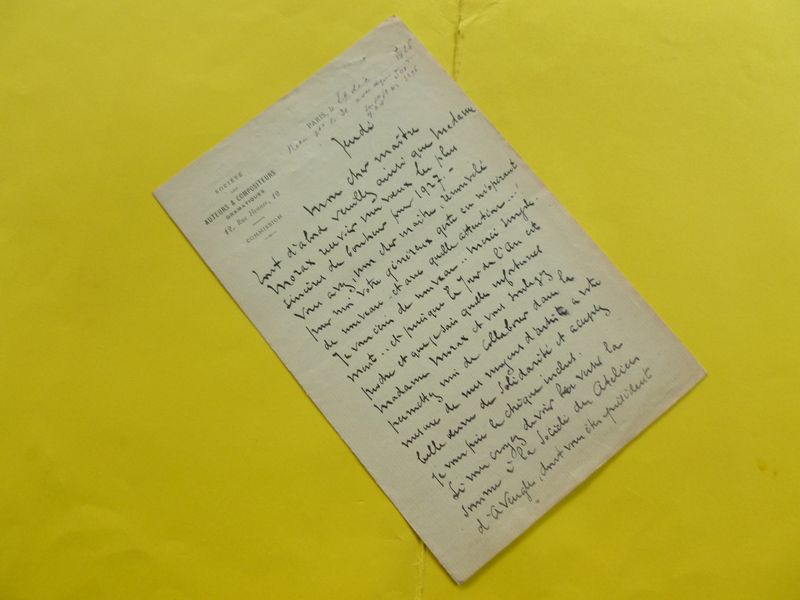 SOCIÉTÉ
DES
AUTEURS & COMPOSITEURS
DRAMATIQUES
12, Rue Henner, 12
COMMISSION
PARIS, le 29
Jeudi
Mon cher maître
tout d'abord veuillez ainsi que Madame
Morax recevoir mes vœux les plus
sincères de bonheur pour 1927 -
Vous avez, mon cher maître, renouvelé
pour moi votre généreux geste en m'opérant
de nouveau - et avec quelle attention...!
Je vous suis de nouveau.. merci
.. et puisque le Jour de l'An est
proche et que je sais quelles infortunes
Madame Morax et vous soulagez
permettez moi de collaborer dans la
mesure de mes moyens d'artiste à votre
belle œuvre de solidarité et acceptez
Je vous prie le chèque inclus.
Si vous croyez devoir verser la
somme à la Société des Ateliers
d'Aveugles, dont vous êtes président